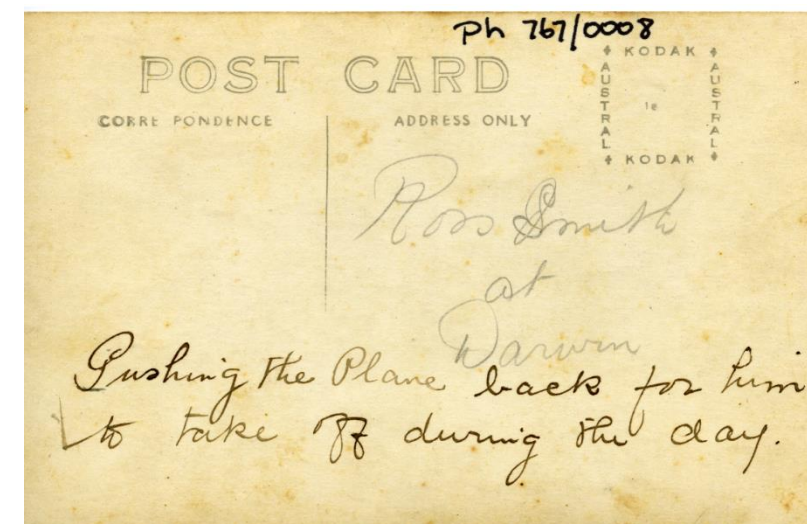 Ph 767/0008
POST CARD
CORRE PONDENCE
ADDRESS ONLY
KODAK
AUSTRAL
AUSTRAL
KODAK
Ross Smith
at
Darwin
Pushing the Plane back for him
to take off during the day.